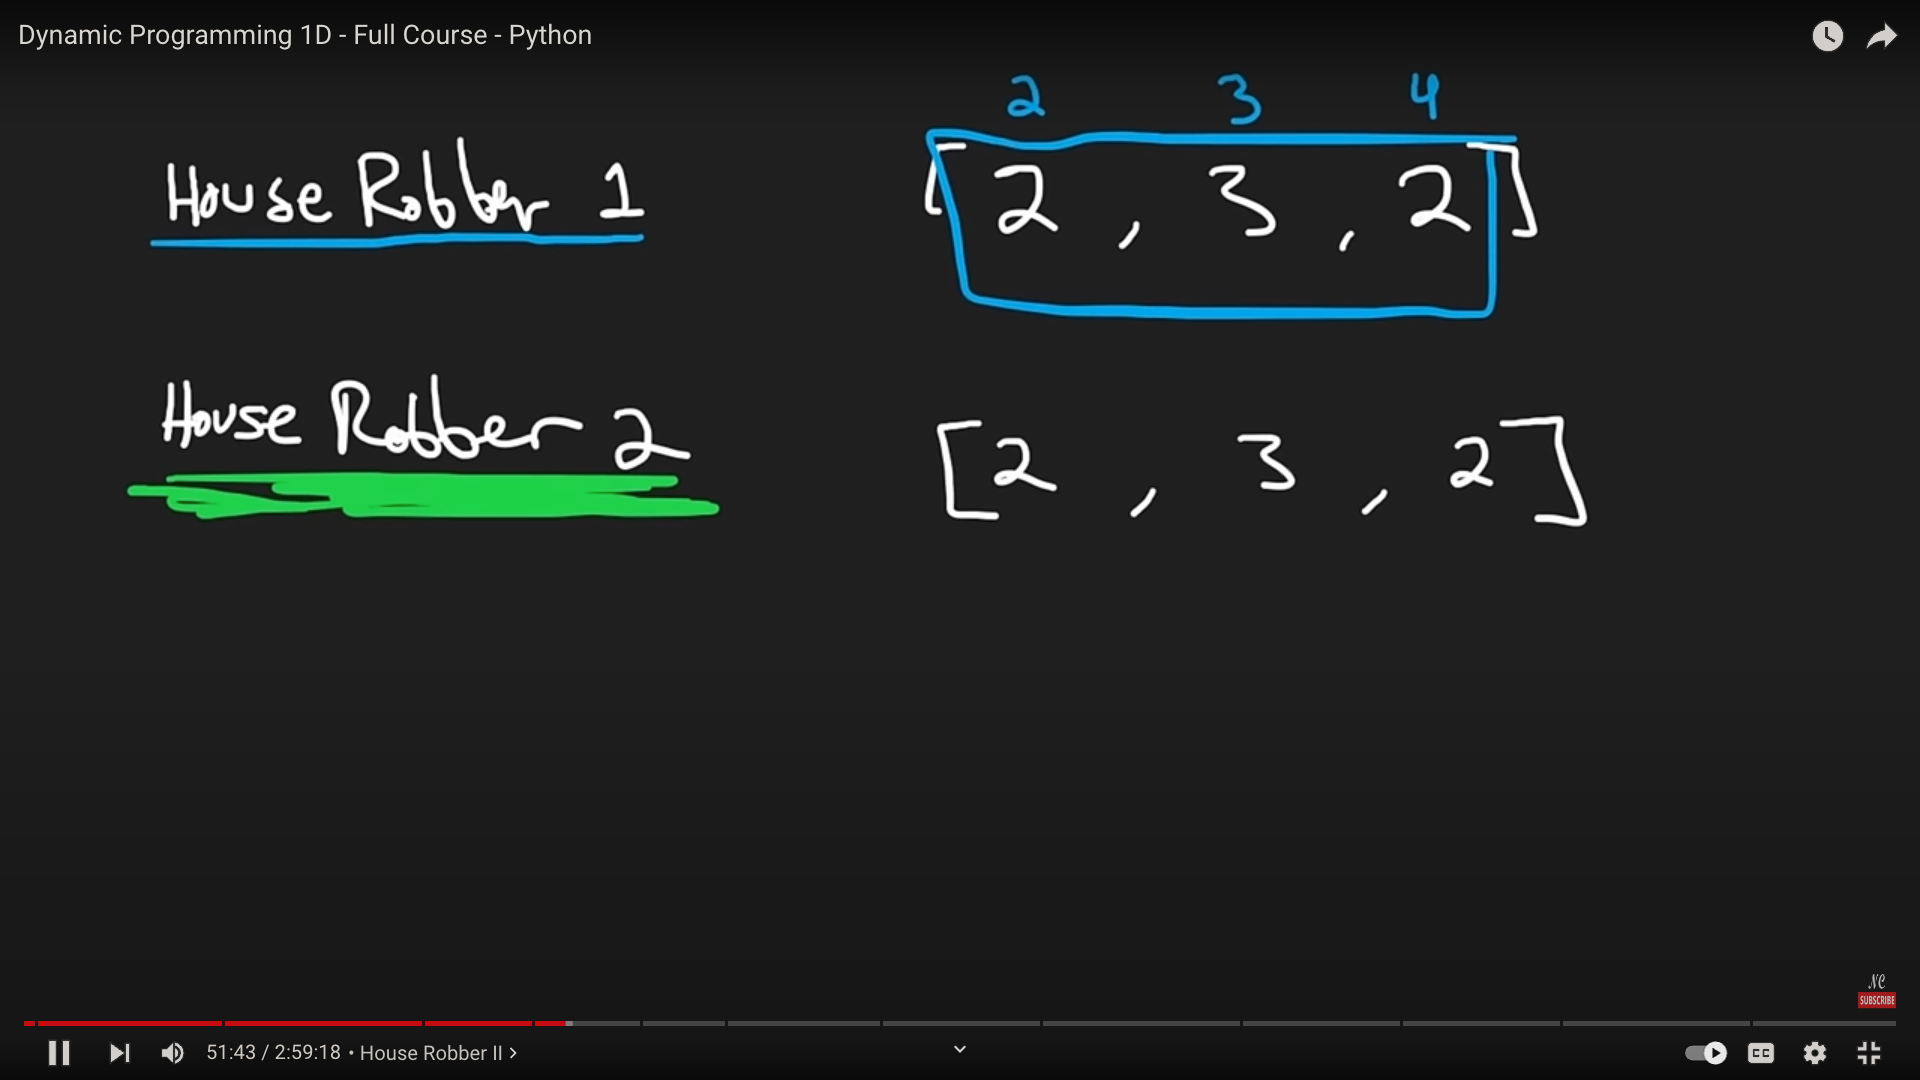 Dynamic Programming 1D - Full Course - Python
2 3 4
House Robber 1 [2, 3, 2]
House Robber 2 [2, 3, 2]
NC
SUBSCRIBE
51:43 / 2:59:18 • House Robber II >
CC